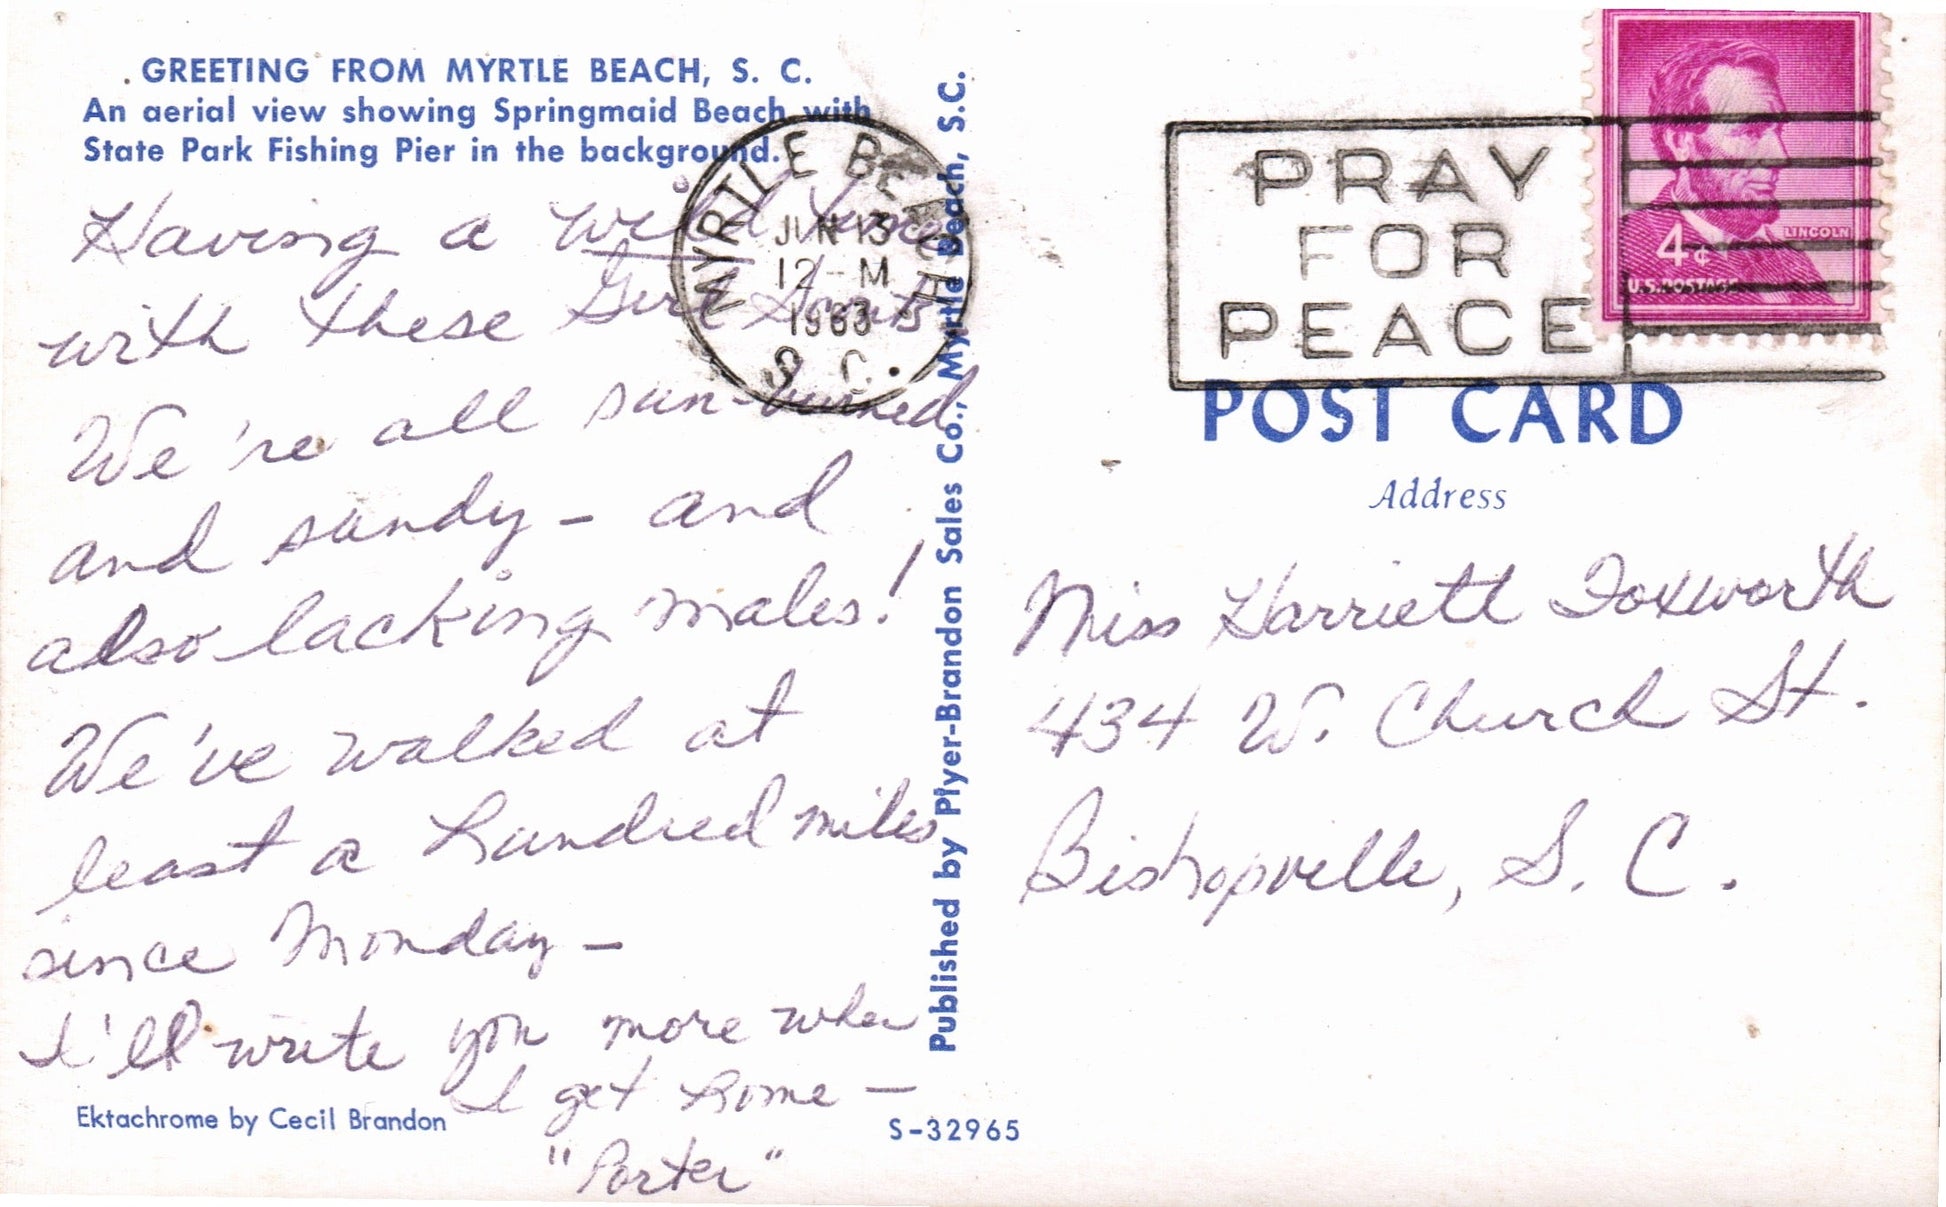 GREETING FROM MYRTLE BEACH, S. C.
An aerial view showing Springmaid Beach with
State Park Fishing Pier in the background.
Having a wild time
with these Girl Scouts
We're all sun-burned
and sandy - and
also lacking males!
We've walked at
least a hundred miles
since Monday -
I'll write you more when
I get home -
"Porter"
Ektachrome by Cecil Brandon
S-32965
Published by Plyer-Brandon Sales Co., Myrtle Beach, S.C.
MYRTLE BEACH
JUN 13
12 - M
1963
S. C.
PRAY
FOR
PEACE
LINCOLN
4¢
U.S. POSTAGE
POST CARD
Address
Miss Harriett Foxworth
434 W. Church St.
Bishopville, S. C.